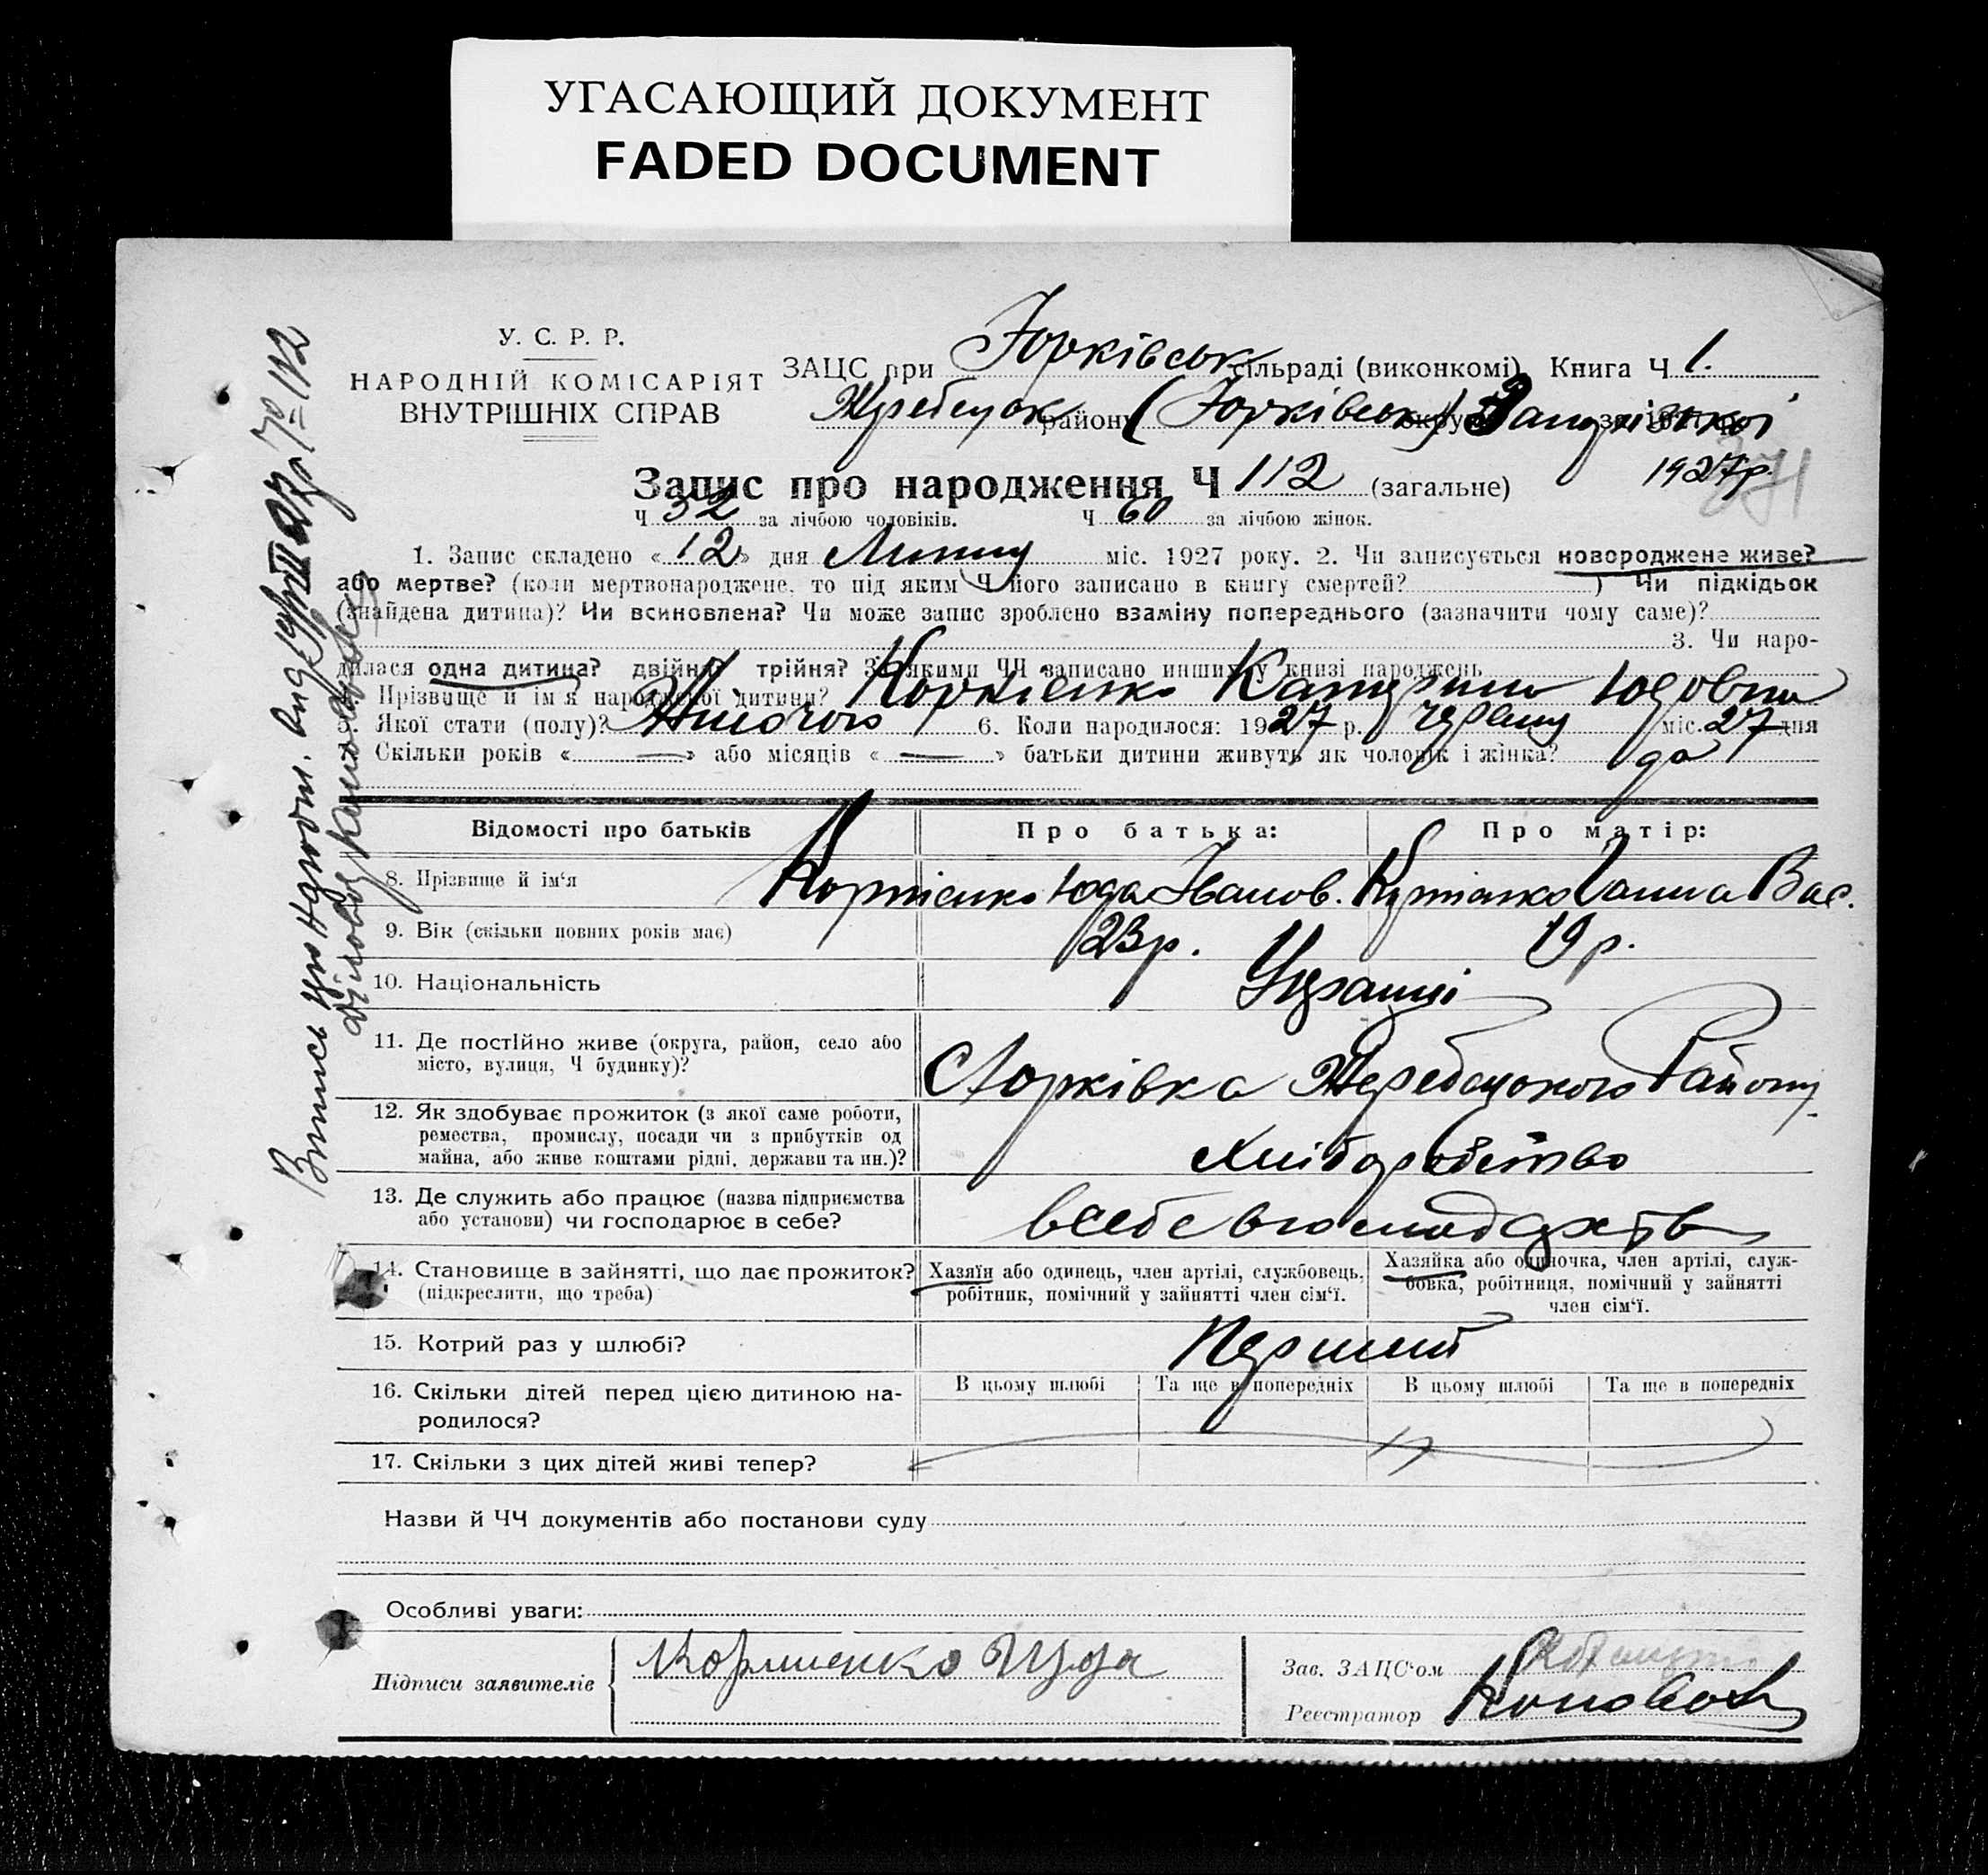 УГАСАЮЩИЙ ДОКУМЕНТ
FADED DOCUMENT
У. С. Р. Р.
НАРОДНІЙ КОМІСАРІЯТ
ВНУТРІШНІХ СПРАВ
ЗАЦС при Юрківськ сільраді (виконкомі) Книга Ч 1.
району (Юрківськ) округи
1927р.
Запис про народження Ч 112 (загальне)
Ч 52 за лічбою чоловіків. Ч 60 за лічбою жінок.
1. Запис складено «12» дня Липня міс. 1927 року. 2. Чи записується новороджене живе?
або мертве? (коли мертвонароджене, то під яким Ч його записано в книгу смертей? ) Чи підкідьок
(знайдена дитина)? Чи всиновлена? Чи може запис зроблено взаміну попереднього (зазначити чому саме)?
3. Чи наро-
дилася одна дитина? двійня? трійня? За якими ЧЧ записано инших у книзі народжень
Прізвище й ім'я народженої дитини? Корнієнко Катерина Юдовна
5. Якої стати (полу)? Жіночого 6. Коли народилося: 1927 р. червня міс. 27 дня
Скільки років « — » або місяців « — » батьки дитини живуть як чоловік і жінка? да
Відомості про батьків
Про батька:
Про матір:
8. Прізвище й ім'я Корнієнко Юда Іванов. Ганна Вас.
9. Вік (скільки повних років має) 23р. 19р.
10. Національність Українці
11. Де постійно живе (округа, район, село або
місто, вулиця, Ч будинку)?
С Юрківка Жеребецького Району
12. Як здобуває прожиток (з якої саме роботи,
ремества, промислу, посади чи з прибутків од
майна, або живе коштами рідні, держави та ин.)?
Хліборобство
13. Де служить або працює (назва підприємства
або установи) чи господарює в себе?
в себе в господарстві
14. Становище в зайнятті, що дає прожиток?
(підкреслити, що треба)
Хазяїн або одинець, член артілі, службовець,
робітник, помічний у зайнятті член сім'ї.
Хазяйка або одиночка, член артілі, служ-
бовка, робітниця, помічний у зайнятті
член сім'ї.
15. Котрий раз у шлюбі? Перший
16. Скільки дітей перед цією дитиною на-
родилося?
В цьому шлюбі
Та ще в попередніх
В цьому шлюбі
Та ще в попередніх
17. Скільки з цих дітей живі тепер?
Назви й ЧЧ документів або постанови суду
Особливі уваги:
Підписи заявителів
Корниенко Июда
Зав. ЗАЦС'ом
Реєстратор